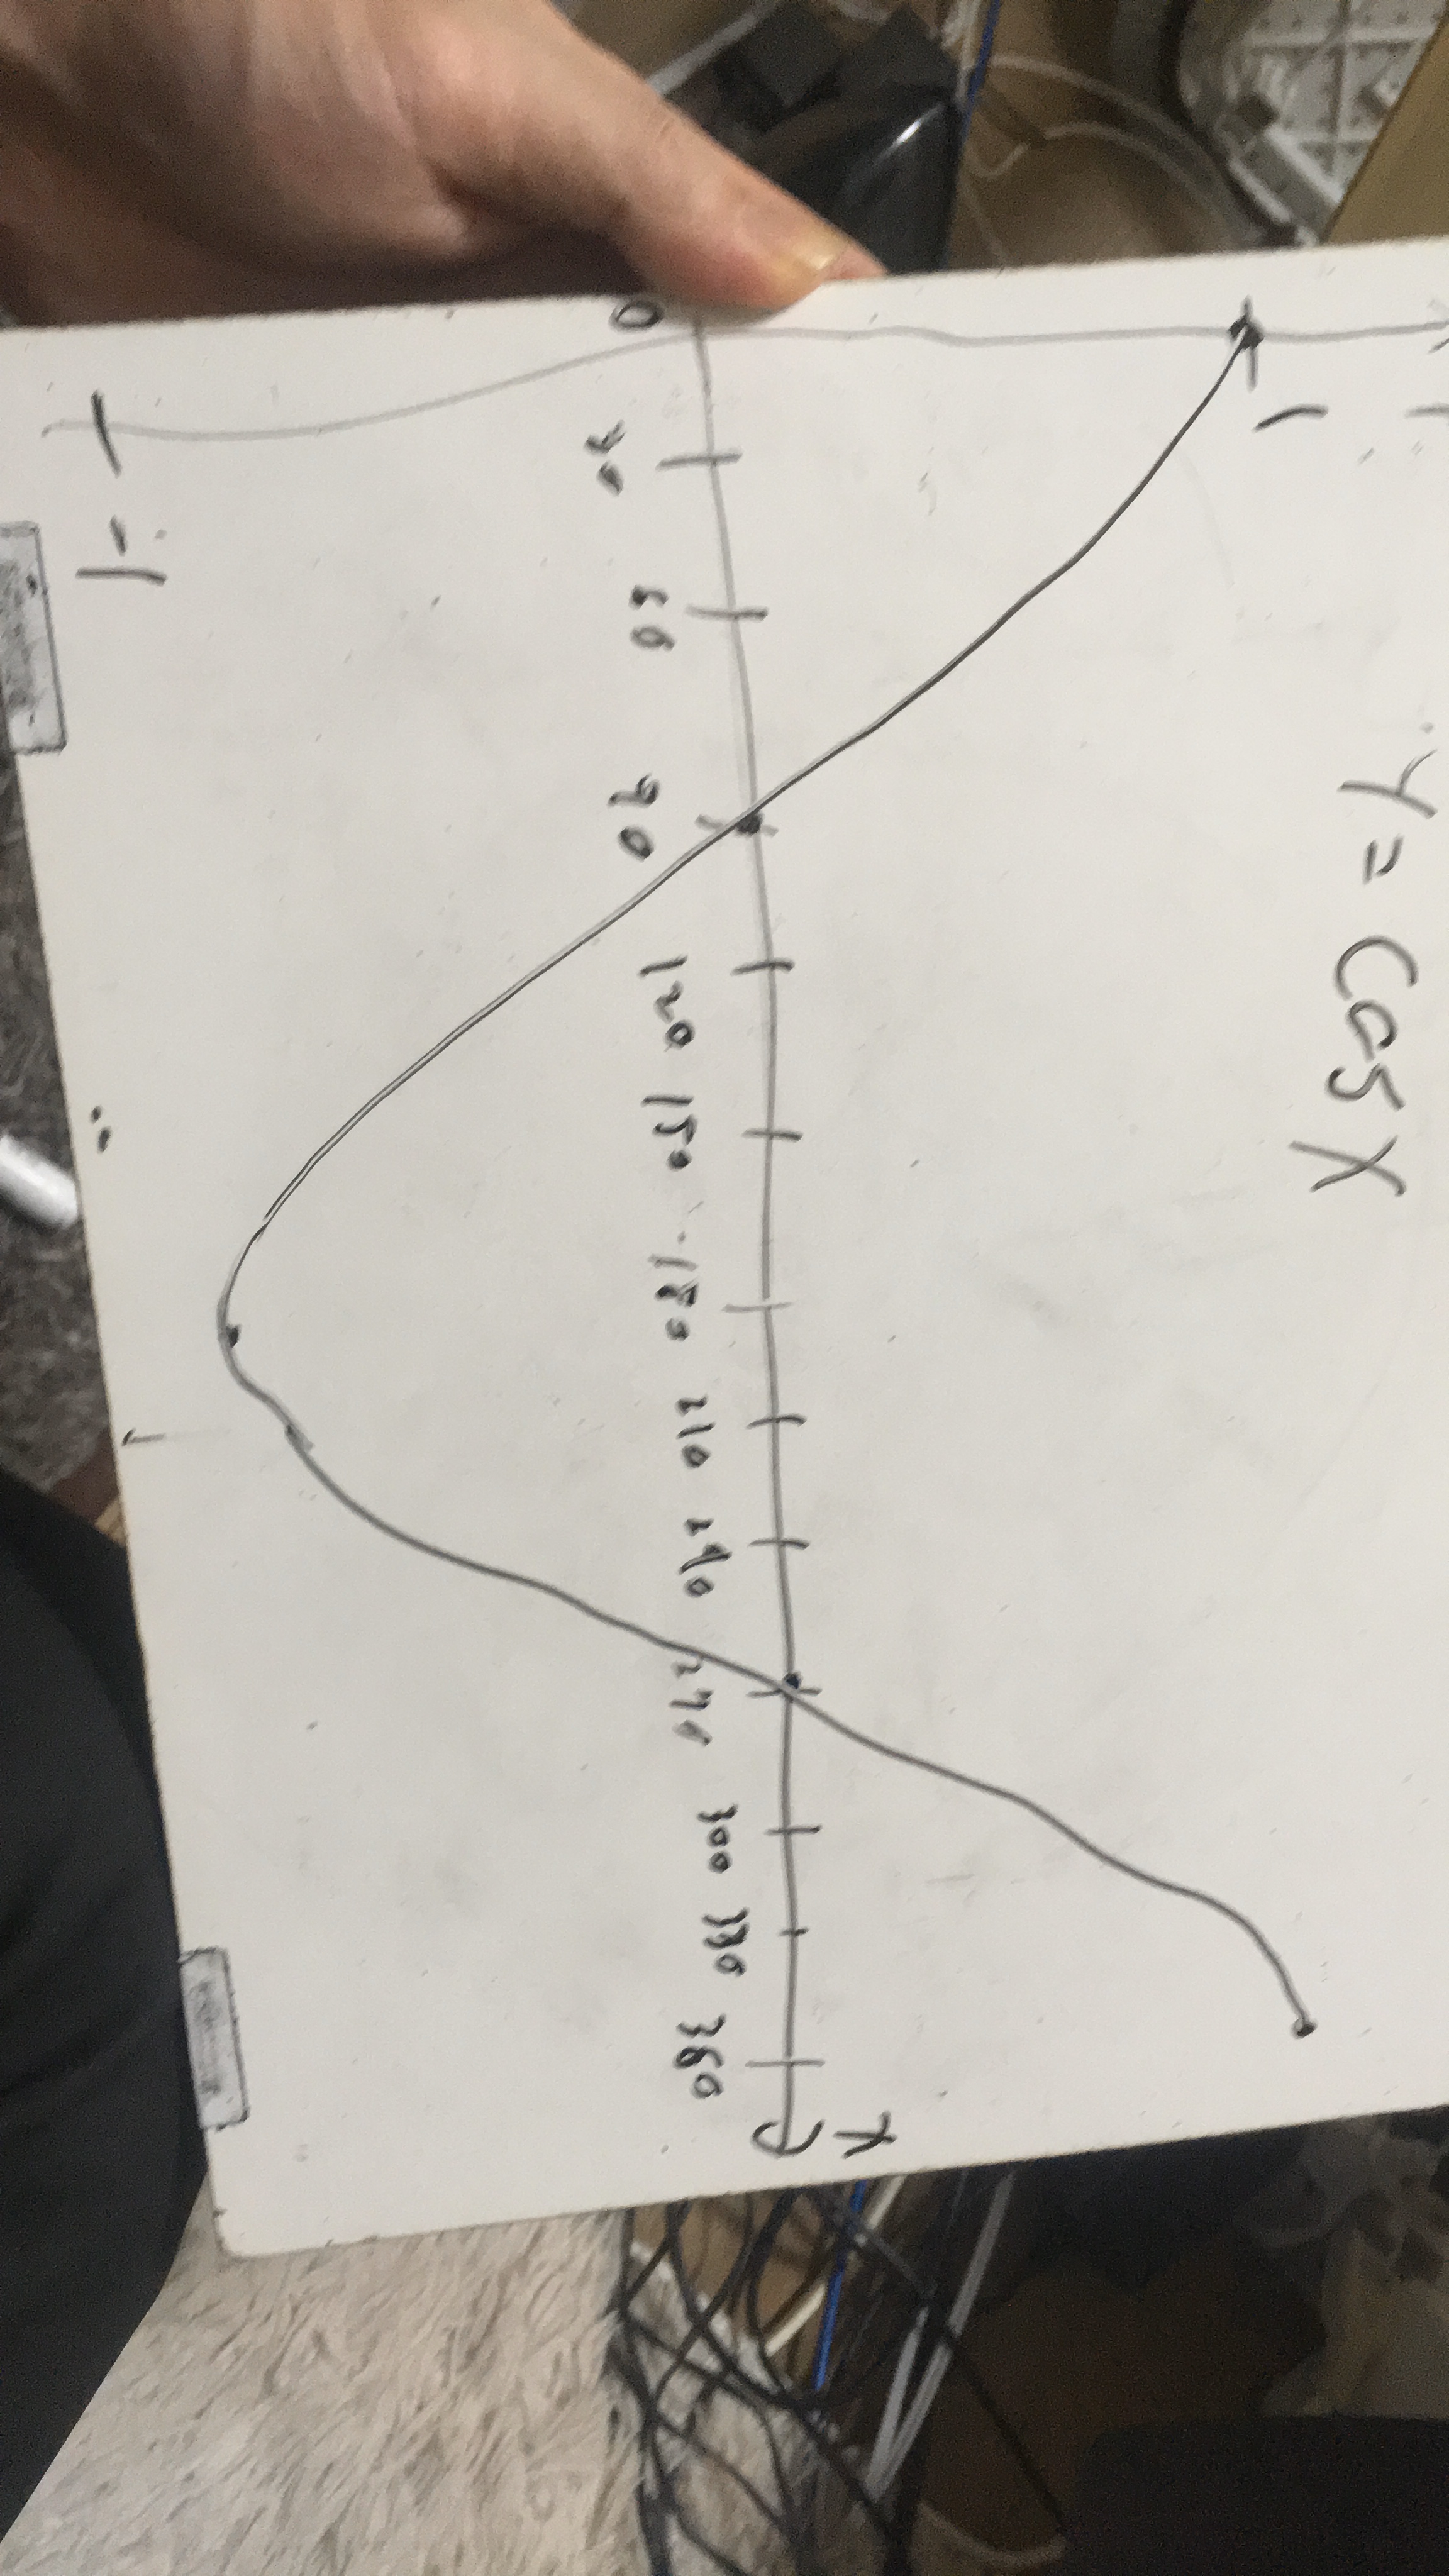 y = cos x
1
0
30
60
90
120
150
180
210
240
270
300
330
360
x
-1